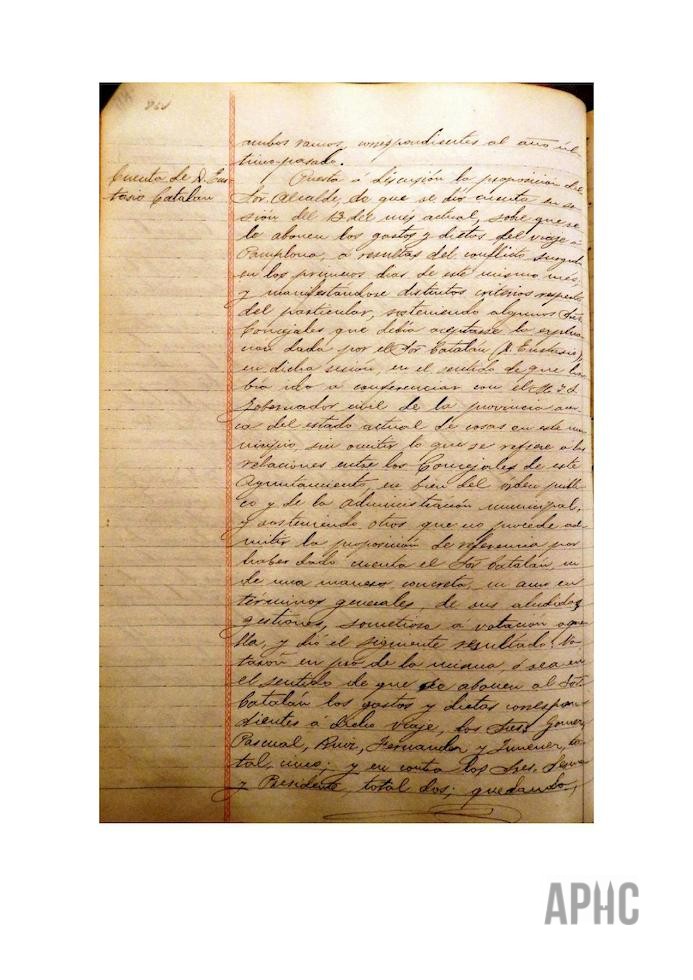 ambos ramos, correspondientes al año úl-
timo pasado.
Cuenta de D. Eus-
tasio Catalan
Puesta á discusión la proposición del
Sor. Alcalde, de que se dió cuenta en se-
sión del 13 del mes actual, sobre que se
le abonen los gastos y dietas del viaje á
Pamplona, á resultas del conflicto surgido
en los primeros dias de este mismo mes,
y manifestándose distintos criterios respecto
del particular, sosteniendo algunos Sres.
Concejales que debía aceptarse la explica-
ción dada por el Sor Catalán (D. Eustasio),
en dicha sesión, en el sentido de que ha-
bía ido a conferenciar con el M. I. S.
Gobernador civil de la provincia acer-
ca del estado actual de cosas en este mu-
nicipio, sin omitir lo que se refiere á las
relaciones entre los Concejales de este
Ayuntamiento, en bien del órden públi-
co y de la administración municipal,
y sosteniendo otros que no procede ad-
mitir la proposición de referencia por
haber dado cuenta el Sor Catalán, ni
de una manera concreta, ni aun en
términos generales, de sus aludidas
gestiones, sometiose á votación aque-
lla, y dió el siguiente resultado: Vo-
taron en pró de la misma ó sea en
el sentido de que se abonen al Sor.
Catalán los gastos y dietas correspon-
dientes á dicho viaje, los Sres. Gomez,
Pascual, Ruiz, Fernandez y Jimenez, to-
tal, cinco; y en contra los Sres.
y Presidente, total dos; quedando,
APHC